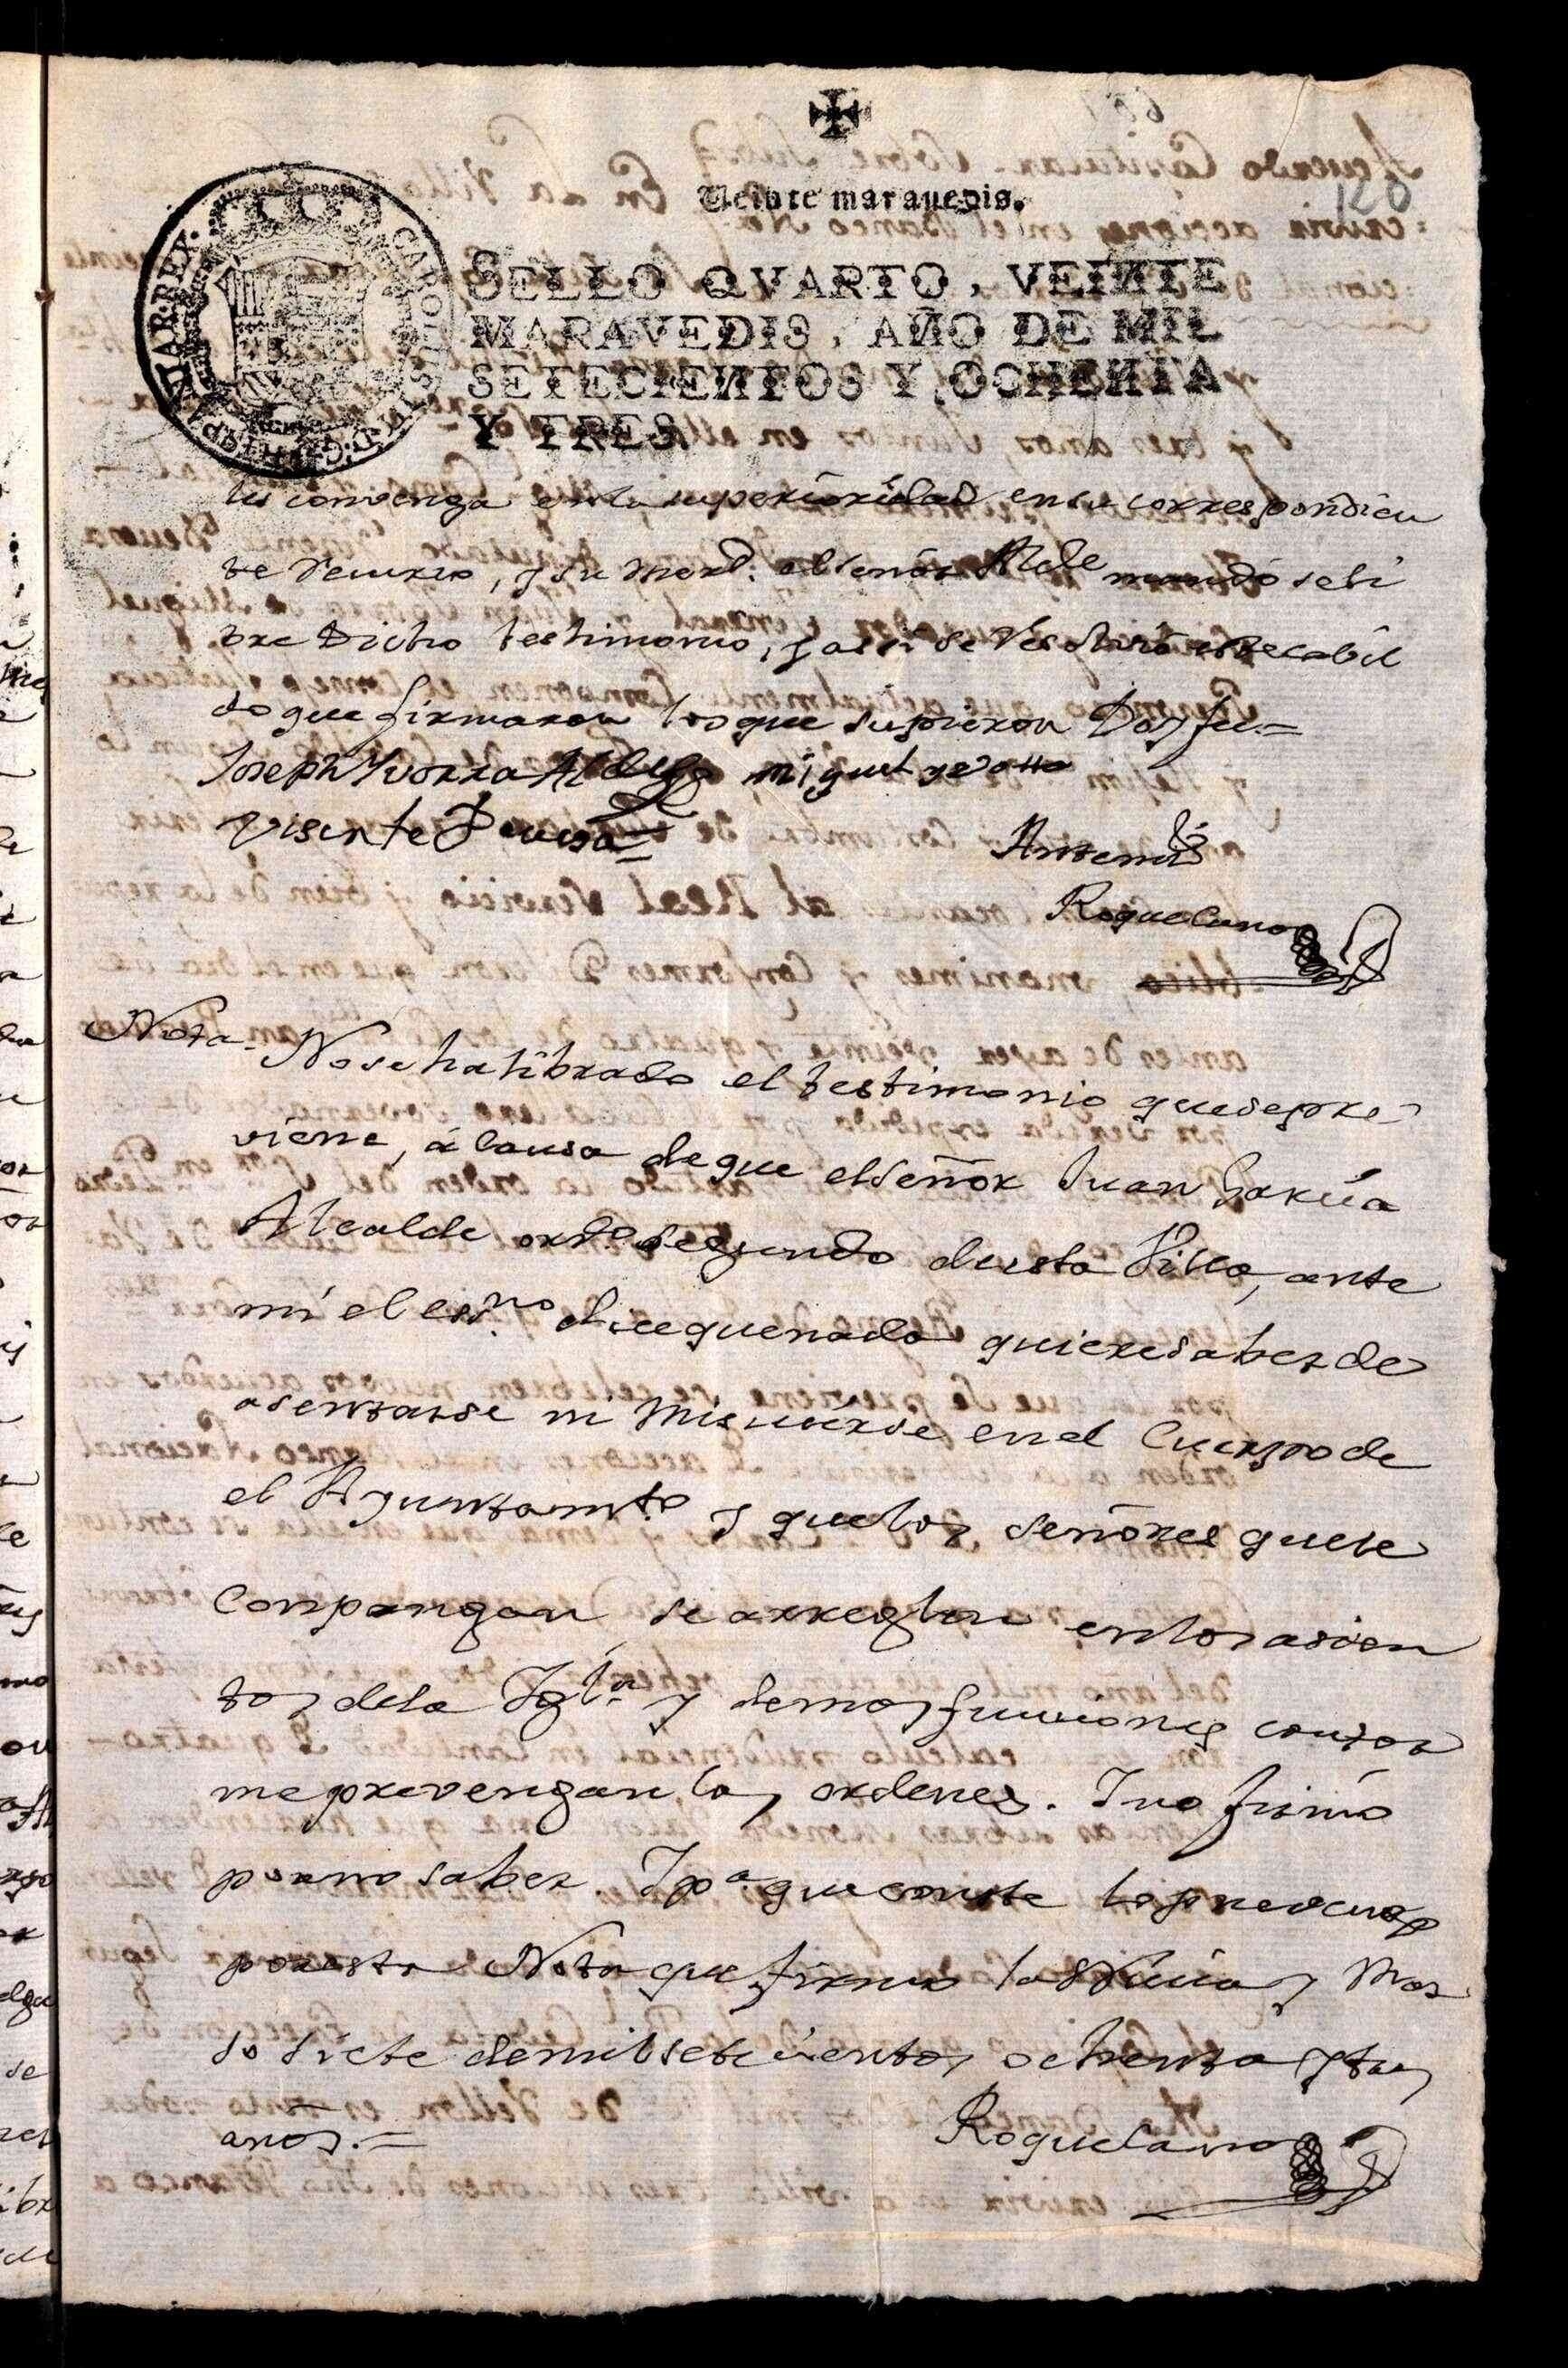 120
Veinte marauedis.
SELLO QVARTO, VEINTE
MARAVEDIS, AÑO DE MIL
SETECIENTOS Y OCHENTA
Y TRES
les convenga en la superioridad, en su correspondien
te recurso, y su merd. el señor Alde mandó se li
bre Dicho testimonio, y assi se resolvió este cabil
do que firmaron los que supieron Doy fee =
Joseph Yvorra Alcalde miguel
Visente Devesa
Antemi
Roque Cano
Nota. No se ha librado el testimonio que se pre-
viene, à causa de que el señor Juan Garcia
Alcalde ordº. segundo de esta Villa, ante
mi el essno. dice que nada quiere saber de
asentarse ni misuirse en el Cuerpo de
el Ayuntamto. y que los señores que le
Compongan se arreglen en los asien
tos de la Igla. y demas funciones confor
me prevengan las ordenes. Y no firmó
por no saber. Y pa. que conste lo
por esta Nota que firmo la y Mar
so siete de mil setecientos ochenta y tres
años. =
Roque Cano